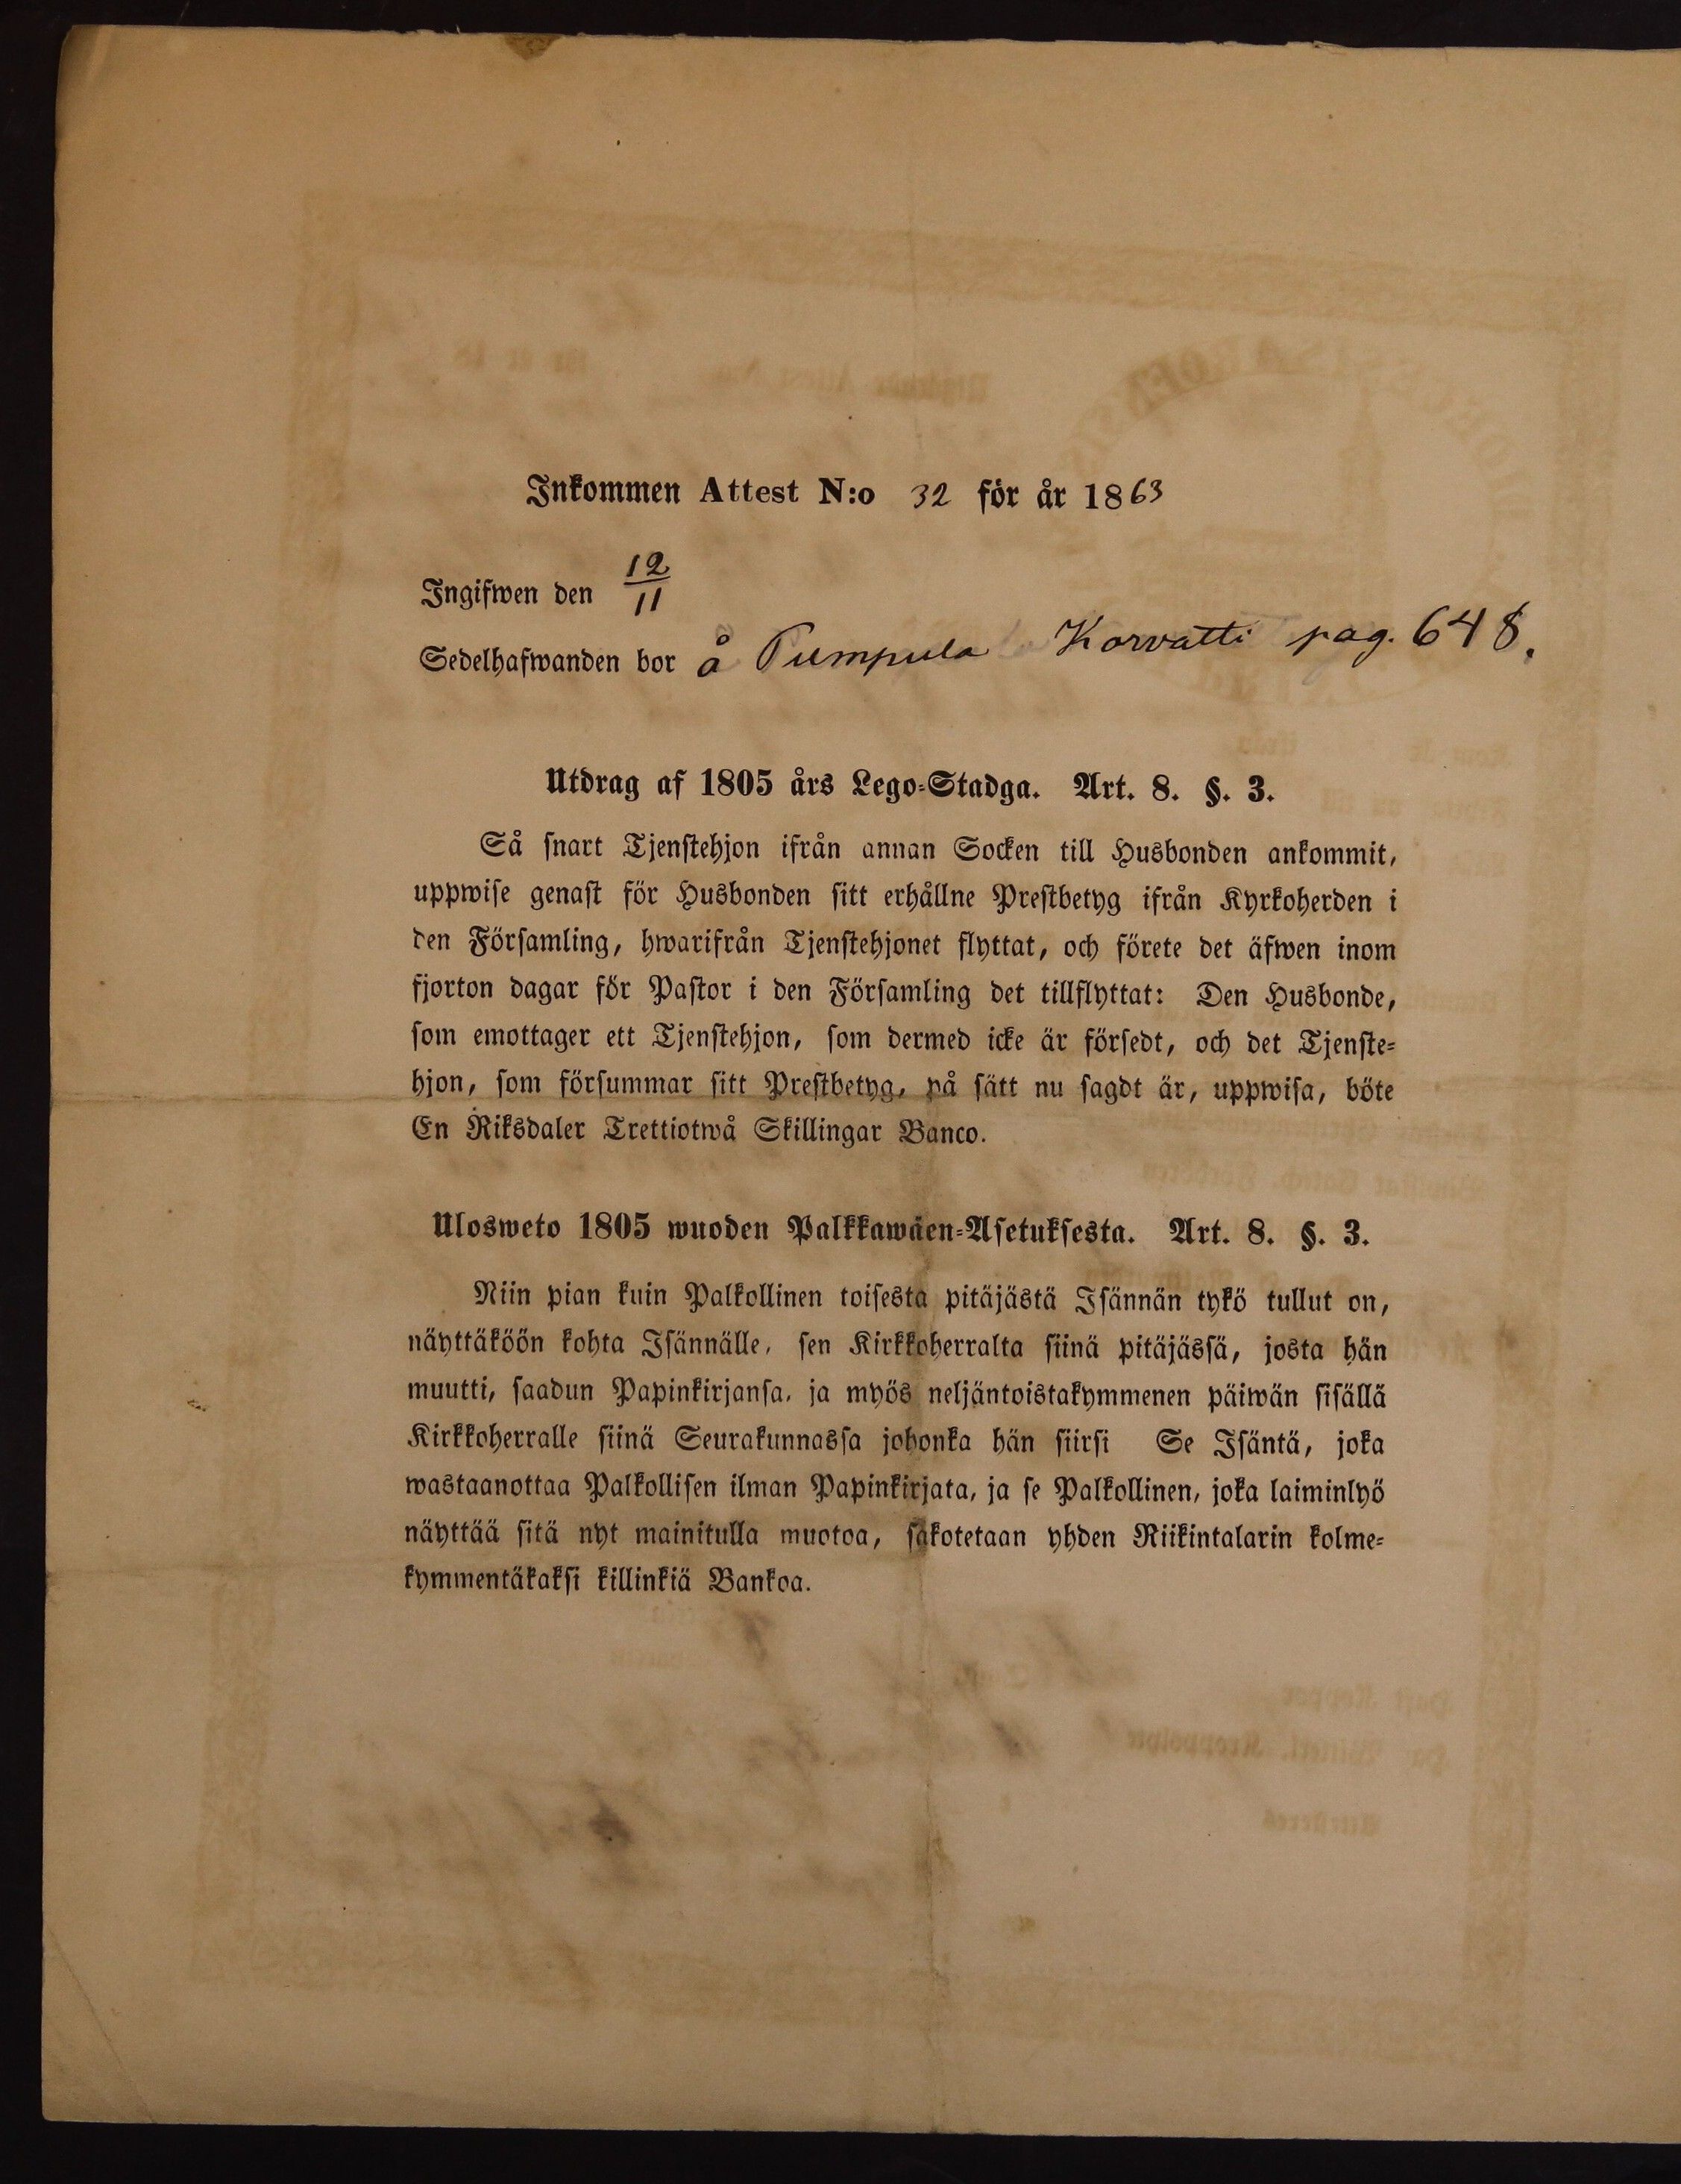 Inkommen Attest N:o 32 för år 1863
Ingifwen den 12/11
Sedelhafwanden bor å Pumpula Korvatti pag. 648.
Utdrag af 1805 års Lego-Stadga. Art. 8. §. 3.
Så snart Tjenstehjon ifrån annan Socken till Husbonden ankommit,
uppwise genast för Husbonden sitt erhållne Prestbetyg ifrån Kyrkoherden i
den Församling, hwarifrån Tjenstehjonet flyttat, och förete det äfwen inom
fjorton dagar för Pastor i den Församling det tillflyttat: Den Husbonde,
som emottager ett Tjenstehjon, som dermed icke är försedt, och det Tjenste-
hjon, som försummar sitt Prestbetyg, på sätt nu sagdt är, uppwisa, böte
En Riksdaler Trettiotwå Skillingar Banco.
Ulosweto 1805 wuoden Palkkawäen-Asetuksesta. Art. 8. §. 3.
Niin pian kuin Palkollinen toisesta pitäjästä Isännän tykö tullut on,
näyttäköön kohta Isännälle, sen Kirkkoherralta siinä pitäjässä, josta hän
muutti, saadun Papinkirjansa, ja myös neljäntoistakymmenen päiwän sisällä
Kirkkoherralle siinä Seurakunnassa johonka hän siirsi Se Isäntä, joka
wastaanottaa Palkollisen ilman Papinkirjata, ja se Palkollinen, joka laiminlyö
näyttää sitä nyt mainitulla muotoa, sakotetaan yhden Riikintalarin kolme-
kymmentäkaksi killinkiä Bankoa.